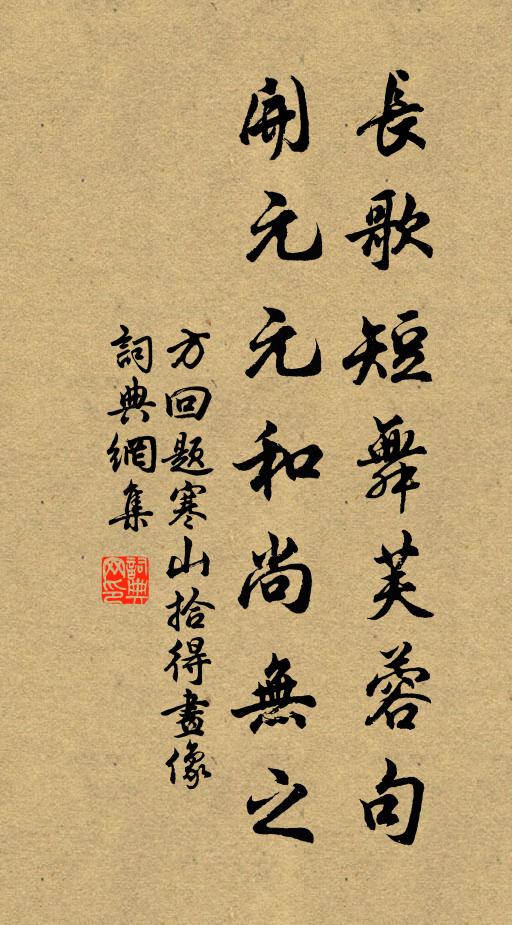 長歌短舞芙蓉句
開元元和尚無之
方回題寒山拾得畫像
詞典網集
詞典網印